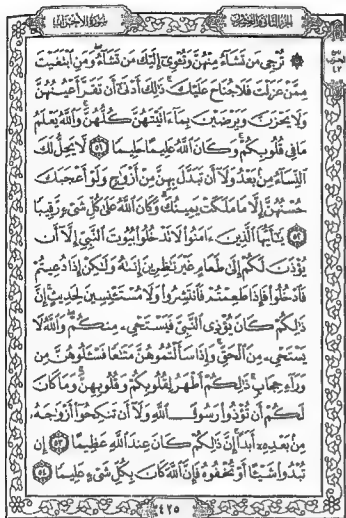 الجزء الثاني والعشرون سورة الأحزاب
۞ تُرْجِى مَن تَشَآءُ مِنْهُنَّ وَتُـْٔوِىٓ إِلَيْكَ مَن تَشَآءُ وَمَنِ ٱبْتَغَيْتَ
مِمَّنْ عَزَلْتَ فَلَا جُنَاحَ عَلَيْكَ ذَٰلِكَ أَدْنَىٰٓ أَن تَقَرَّ أَعْيُنُهُنَّ
وَلَا يَحْزَنَّ وَيَرْضَيْنَ بِمَآ ءَاتَيْتَهُنَّ كُلُّهُنَّ وَٱللَّهُ يَعْلَمُ
مَا فِى قُلُوبِكُمْ وَكَانَ ٱللَّهُ عَلِيمًا حَلِيمًا ٥١ لَّا يَحِلُّ لَكَ
ٱلنِّسَآءُ مِنۢ بَعْدُ وَلَآ أَن تَبَدَّلَ بِهِنَّ مِنْ أَزْوَٰجٍ وَلَوْ أَعْجَبَكَ
حُسْنُهُنَّ إِلَّا مَا مَلَكَتْ يَمِينُكَ وَكَانَ ٱللَّهُ عَلَىٰ كُلِّ شَىْءٍ رَّقِيبًا
٥٢ يَـٰٓأَيُّهَا ٱلَّذِينَ ءَامَنُوا۟ لَا تَدْخُلُوا۟ بُيُوتَ ٱلنَّبِىِّ إِلَّآ أَن
يُؤْذَنَ لَكُمْ إِلَىٰ طَعَامٍ غَيْرَ نَـٰظِرِينَ إِنَىٰهُ وَلَـٰكِنْ إِذَا دُعِيتُمْ
فَٱدْخُلُوا۟ فَإِذَا طَعِمْتُمْ فَٱنتَشِرُوا۟ وَلَا مُسْتَـْٔنِسِينَ لِحَدِيثٍ إِنَّ
ذَٰلِكُمْ كَانَ يُؤْذِى ٱلنَّبِىَّ فَيَسْتَحْىِۦ مِنكُمْ وَٱللَّهُ لَا
يَسْتَحْىِۦ مِنَ ٱلْحَقِّ وَإِذَا سَأَلْتُمُوهُنَّ مَتَـٰعًا فَسْـَٔلُوهُنَّ مِن
وَرَآءِ حِجَابٍ ذَٰلِكُمْ أَطْهَرُ لِقُلُوبِكُمْ وَقُلُوبِهِنَّ وَمَا كَانَ
لَكُمْ أَن تُؤْذُوا۟ رَسُولَ ٱللَّهِ وَلَآ أَن تَنكِحُوٓا۟ أَزْوَٰجَهُۥ
مِنۢ بَعْدِهِۦٓ أَبَدًا إِنَّ ذَٰلِكُمْ كَانَ عِندَ ٱللَّهِ عَظِيمًا ٥٣ إِن
تُبْدُوا۟ شَيْـًٔا أَوْ تُخْفُوهُ فَإِنَّ ٱللَّهَ كَانَ بِكُلِّ شَىْءٍ عَلِيمًا ٥٤
٤٢٥